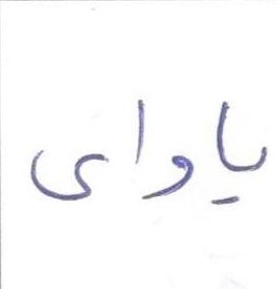 یاوای